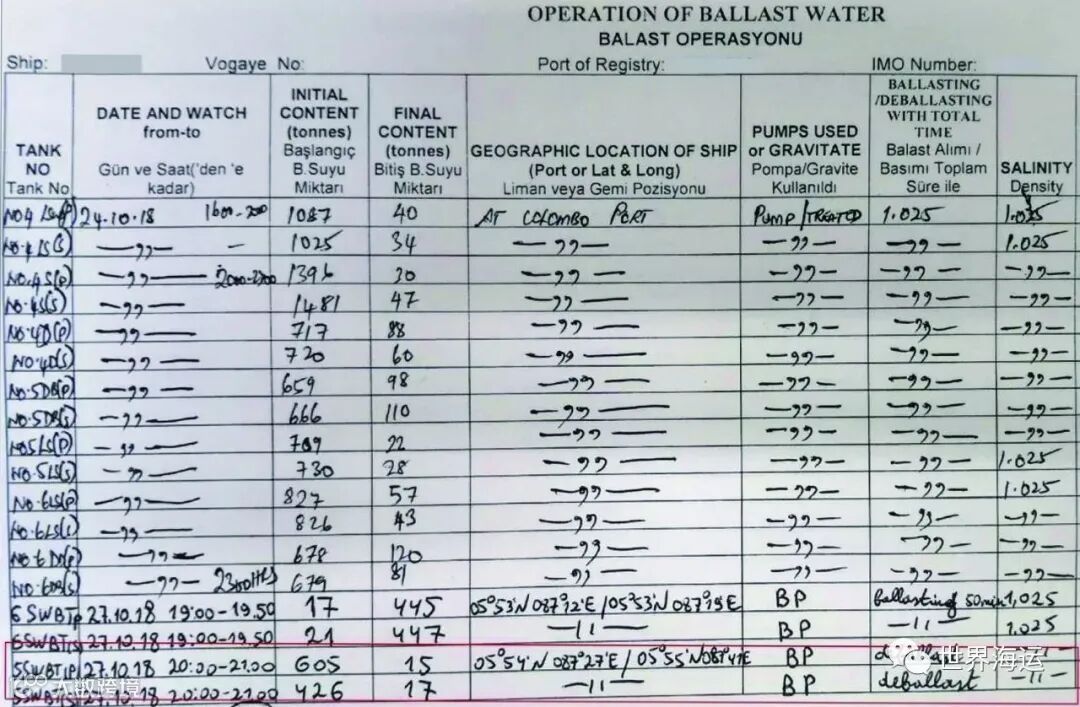 OPERATION OF BALLAST WATER
BALAST OPERASYONU
Ship: Vogaye No: Port of Registry: IMO Number:
TANK NO Tank No
DATE AND WATCH from-to Gün ve Saat('den 'e kadar)
INITIAL CONTENT (tonnes) Başlangıç B.Suyu Miktarı
FINAL CONTENT (tonnes) Bitiş B.Suyu Miktarı
GEOGRAPHIC LOCATION OF SHIP (Port or Lat & Long) Liman veya Gemi Pozisyonu
PUMPS USED or GRAVITATE Pompa/Gravite Kullanıldı
BALLASTING /DEBALLASTING WITH TOTAL TIME Balast Alımı / Basımı Toplam Süre ile
SALINITY Density
24.10.18 1087 40 AT COLOMBO PORT PUMP/TREATED 1.025 1.025
NO.4LS(S) —〃— 1025 34 —〃— —〃— —〃— 1.025
NO.4S(P) —〃— 1396 30 —〃— —〃— —〃— —〃—
NO.4S(S) —〃— 1481 47 —〃— —〃— —〃— —〃—
NO.4D(P) —〃— 717 88 —〃— —〃— —〃— —〃—
NO.4D(S) —〃— 720 60 —〃— —〃— —〃— —〃—
NO.5DB(P) —〃— 659 98 —〃— —〃— —〃— —〃—
NO.5DB(S) —〃— 666 110 —〃— —〃— —〃— —〃—
NO5LS(P) —〃— 709 22 —〃— —〃— —〃— —〃—
NO.5LS(S) —〃— 730 28 —〃— —〃— —〃— 1.025
NO.6LS(P) —〃— 827 57 —〃— —〃— —〃— 1.025
NO.6LS(S) —〃— 826 43 —〃— —〃— —〃— —〃—
NO.6DB(P) —〃— 678 120 —〃— —〃— —〃— —〃—
NO.6DB(S) —〃— 2300HRS 679 81 —〃— —〃— —〃— —〃—
6SWBT(P) 27.10.18 19:00-19.50 17 445 05°53'N 087°12'E /05°53'N 087°19'E BP ballasting 50min 1,025
6SWBT(S) 27.10.18 19:00-19.50 21 447 —11— BP —11— 1.025
5SWBT(P) 27.10.18 20:00-21.00 605 15 05°54'N 087°27'E / 05°55'N BP —11—
5SWBT(S) 27.10.18 20:00-21.00 426 17 —11— BP deballast —11—
世界海运
大数跨境